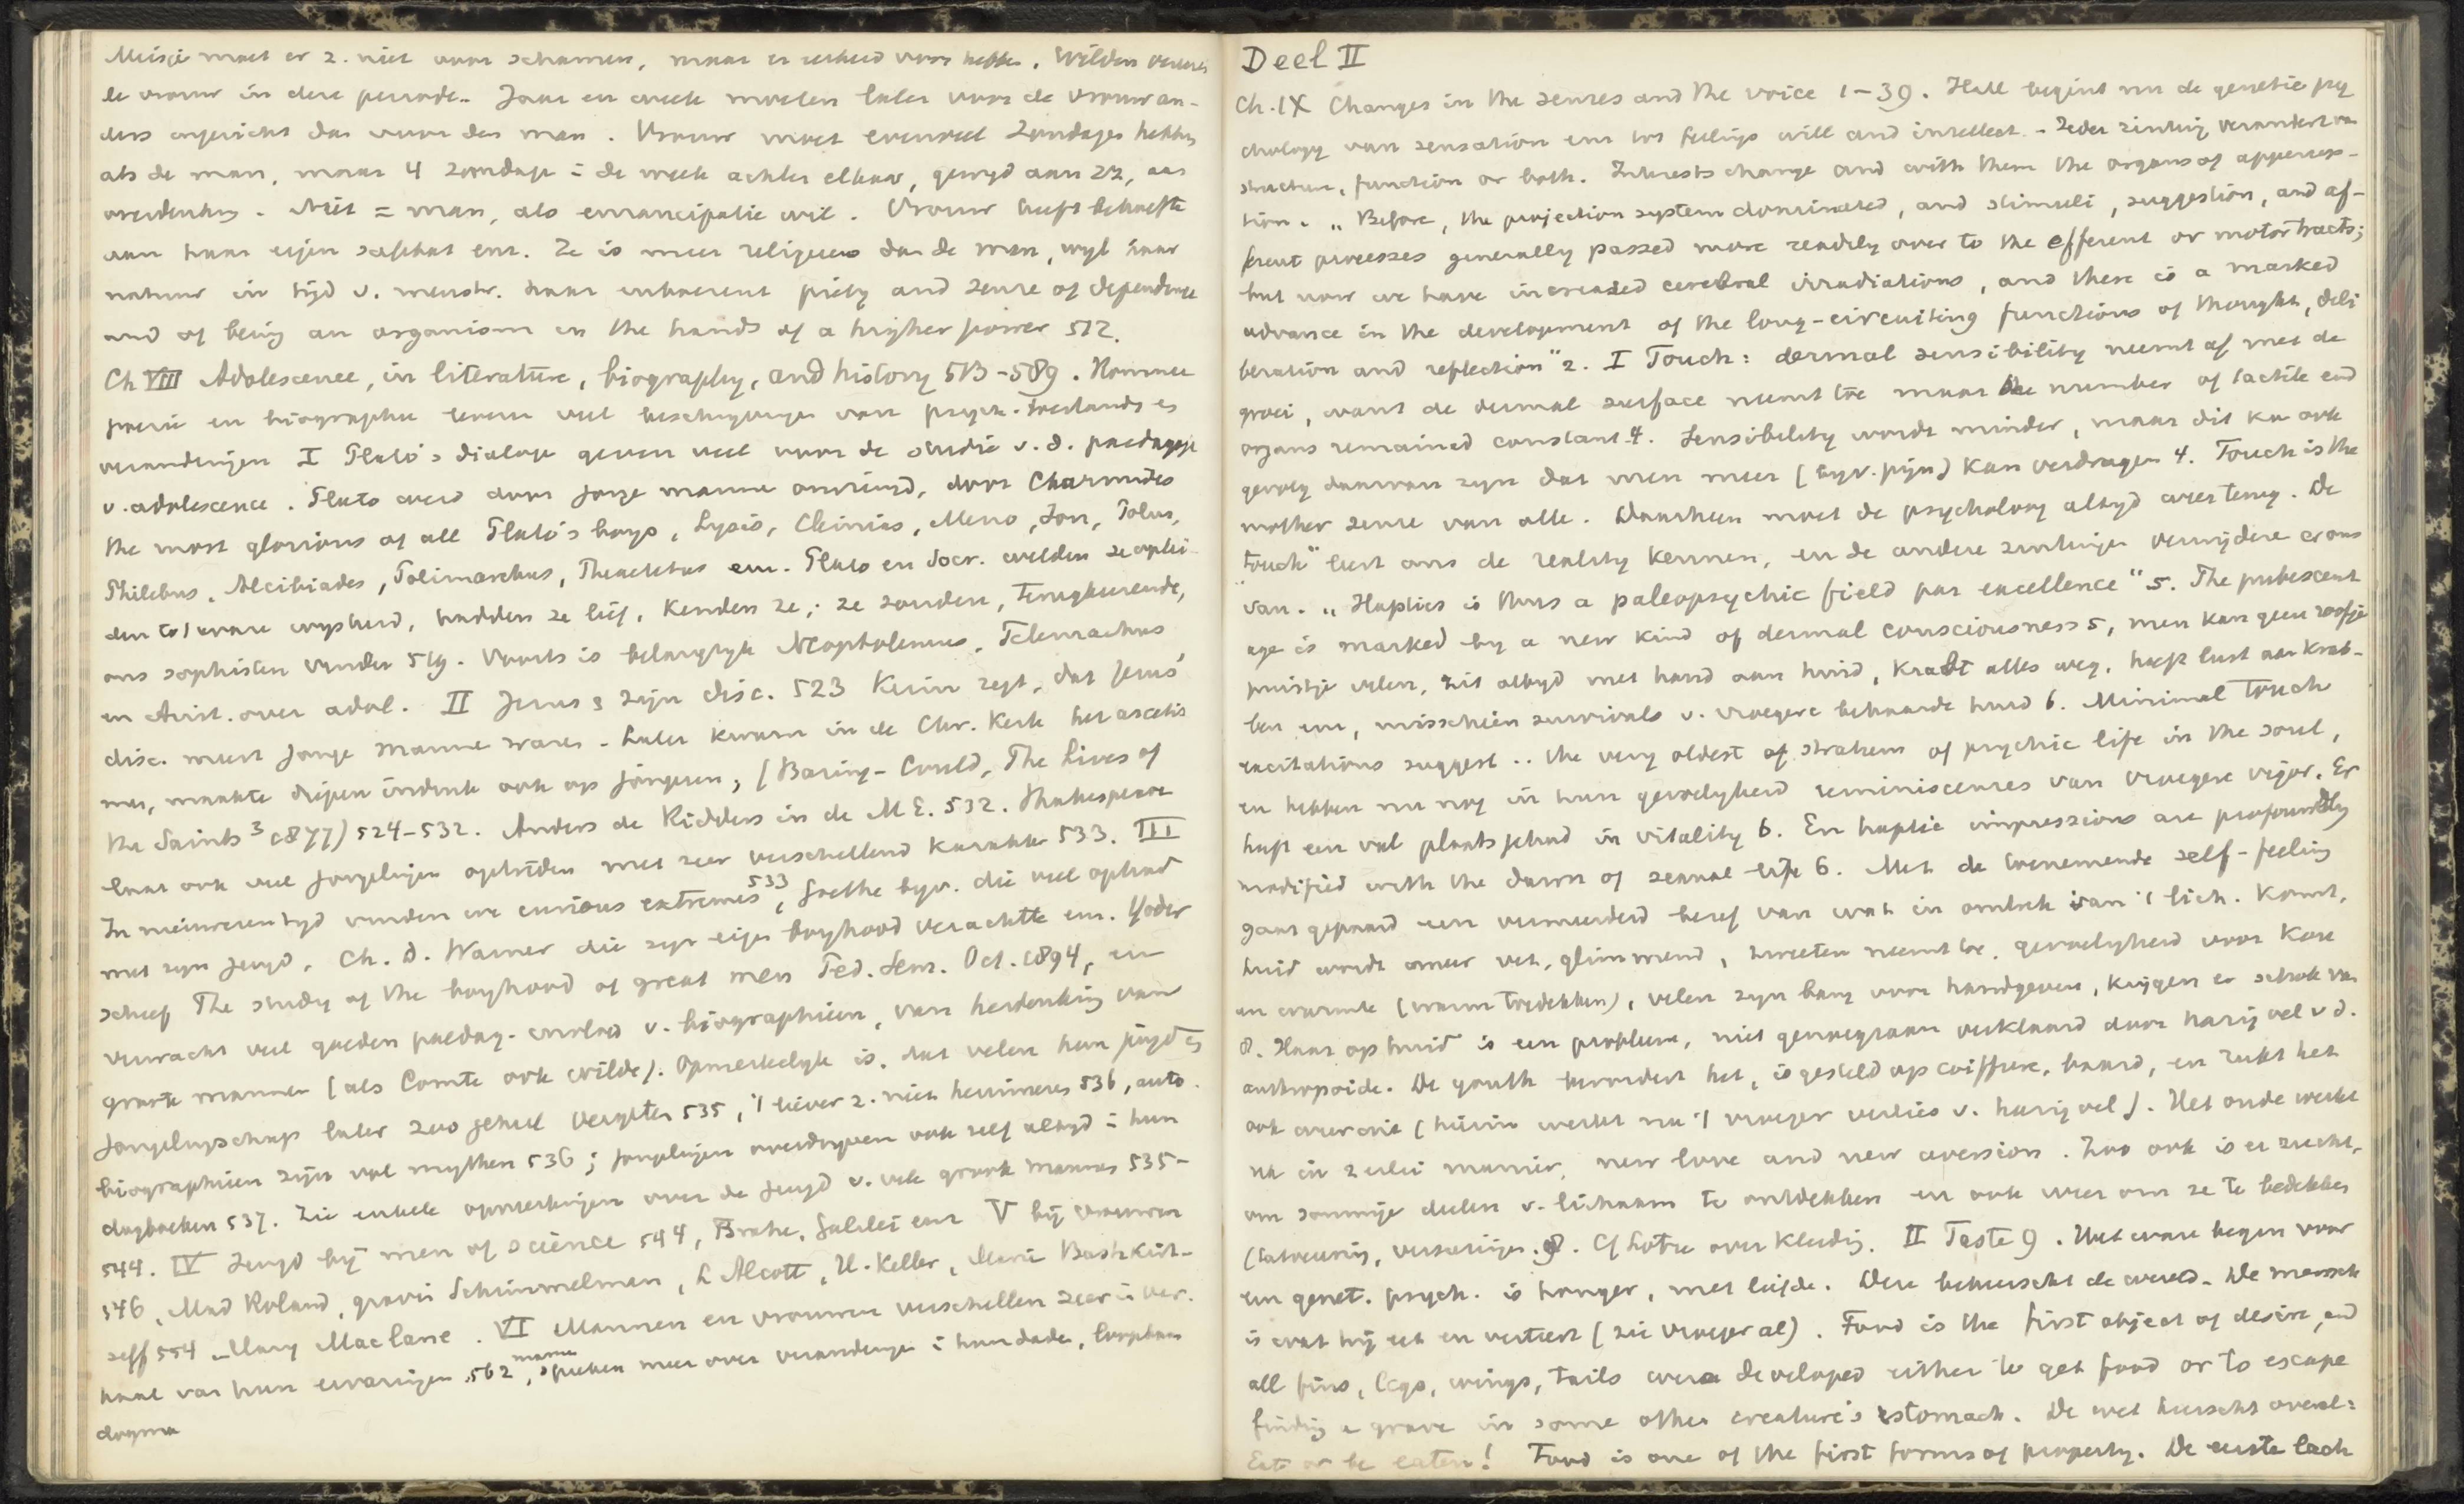 Meisje moet er z. niet voor schamen, maar er eerbied voor hebben. Wilden vereeren
de vrouw in deze periode. Jaar en week moeten later voor de vrouw an-
ders ingericht dan voor den man. Vrouw moet evenveel Zondagen hebben
als de man, maar 4 zondagen in de week achter elkaar, gewijd aan
overdenking. Niet = man, als emancipatie wil. Vrouw heeft behoefte
aan haar eigen enz. Ze is meer religieus dan de man, wijl haar
natuur in tijd v. menstr. haar inhaerent piety and sense of dependence
and of being an organism in the hands of a higher power 512.
Ch VIII Adolescence, in literature, biography, and history 513-589.
poezie en biographie leveren veel beschrijvingen van psych. toestands en
veranderingen I Plato's dialogen geven veel voor de studie v. d. paedagogie
v. adolescence. Plato werd door jonge mannen omringd, door Charmides
the most glorious of all Plato's boys, Lysis, Cleinias, Meno, Ion, Polus,
Philebus, Alcibiades, Polimarchus, Theaetetus enz. Plato en Socr. wilden ze oplei-
den tot ware wijsheid, hadden ze lief, kenden ze; ze zouden, terugkeerende,
ons sophisten vinden 519. Voorts is belangrijk Neoptolemus, Telemachus,
en Arist. over adol. II Jezus & zijn disc. 523 Keim zegt, dat Jezus'
disc. meest jonge mannen waren. Later kwam in de Chr. Kerk het ascetis
me, maakte diepen indruk ook op jongeren, (Baring-Gould, The Lives of
the Saints³ 1877) 524-532. Anders de Ridders in de M.E. 532. Shakespeare
laat ook veel jongelingen optreden met zeer verschillend karakter 533. III
In nieuweren tijd vinden we curious extremes 533, Goethe bijv. die veel ophad
met zijn jeugd, Ch. D. Warner die zijn eigen boyhood verachtte enz. Yoder
schreef The study of the boyhood of great men Ped. Sem. Oct. 1894, en
verwacht veel goeden paedag. invloed v. biographieen, van herdenking van
groote mannen (als Comte ook wilde). Opmerkelijk is, dat velen hun jeugd en
jongelingschap later zoo geheel vergeten 535, 't liever z. niet herinneren 536, auto
biographieen zijn vol mythen 536; jongelingen overdrijven ook zelf altijd in hun
dagboeken 537. Zie enkele opmerkingen over de jeugd v. vele groote mannen 535-
544. IV Jeugd bij men of science 544, Brahe, Galilei enz V bij vrouwen
546, Mad Roland, gravin Schimmelman, L Alcott, H. Keller, Marie Bashkirt-
seff 554 Mary MacLane. VI Mannen en vrouwen verschillen zeer in ver-
haal van hun ervaringen 562, mannen spreken meer over veranderingen in hun daden, loopbaan
dogma
Deel II
Ch. IX Changes in the senses and the voice 1-39. Hall begint nu de genetic psy
chology van sensation enz tot feelings will and intellect. Ieder zintuig verandert van
structure, function or both. Interests change and with them the organs of appercep-
tion. „Before, the projection system dominated, and stimuli, suggestion, and af-
ferent processes generally passed more readily over to the efferent or motor tracts;
but now we have increased cerebral irradiations, and there is a marked
advance in the development of the long-circuiting functions of thought, deli
beration and reflection" 2. I Touch: dermal sensibility neemt af met de
groei, want de dermal surface neemt toe maar the number of tactile end
organs remained constant 4. Sensibility wordt minder, maar dit kan ook
gevolg daarvan zijn dat men meer (bijv. pijn) kan verdragen 4. Touch is the
mother sense van alle. Daarheen moet de psychology altijd weer terug. De
„touch" leert ons de reality kennen, en de andere zintuigen verwijderen er ons
van. „Haptics is thus a paleopsychic field par excellence" 5. The pubescent
age is marked by a new kind of dermal consciousness 5, men kan geen roofje
puistje velen, zit altijd met hand aan huid, krabt alles weg, heeft lust aan krab-
ben enz, misschien survivals v. vroegere behaarde huid 6. Minimal touch
excitations suggest .. the very oldest of stratum of psychic life in the soul,
en hebben nu nog in hun gevoeligheid reminiscences van vroegere vigor. Er
heeft een val plaats gehad in vitality 6. En haptic impressions are profoundly
modified with the dawn of sexual life 6. Met de toenemende self-feeling
gaat gepaard een vermeerderd besef van wat in omtrek van 't lich. komt,
huid wordt meer vet, glimmend, zweeten neemt toe, gevoeligheid voor koude
en warmte (warm toedekken), velen zijn bang voor handgeven, krijgen er schok van
8. Haar op huid is een probleem, niet genoegzaam verklaard door harig vel v d.
anthropoide. De youth bevordert het, is gesteld op coiffure, baard, en rukt het
ook weer uit (hierin werkt na 't vroeger verlies v. harig vel). Het oude werkt
na in zulke manier, new love and new aversion. Zoo ook is er zucht,
om sommige deelen v. lichaam te ontdekken en ook weer om ze te bedekken
(tatoeering, versieringen. 8. Cf Lotze over kleeding. II Taste 9. Het ware begin voor
een genet. psych. is honger, met liefde. Deze beheerscht de wereld. De mensch
is wat hij eet en verteert (zie vroeger al). Food is the first object of desire, and
all fins, legs, wings, tails were developed either to get food or to escape
finding a grave in some other creature's stomach. De wet heerscht overal:
Eat or be eaten! Food is one of the first forms of property. De eerste lach